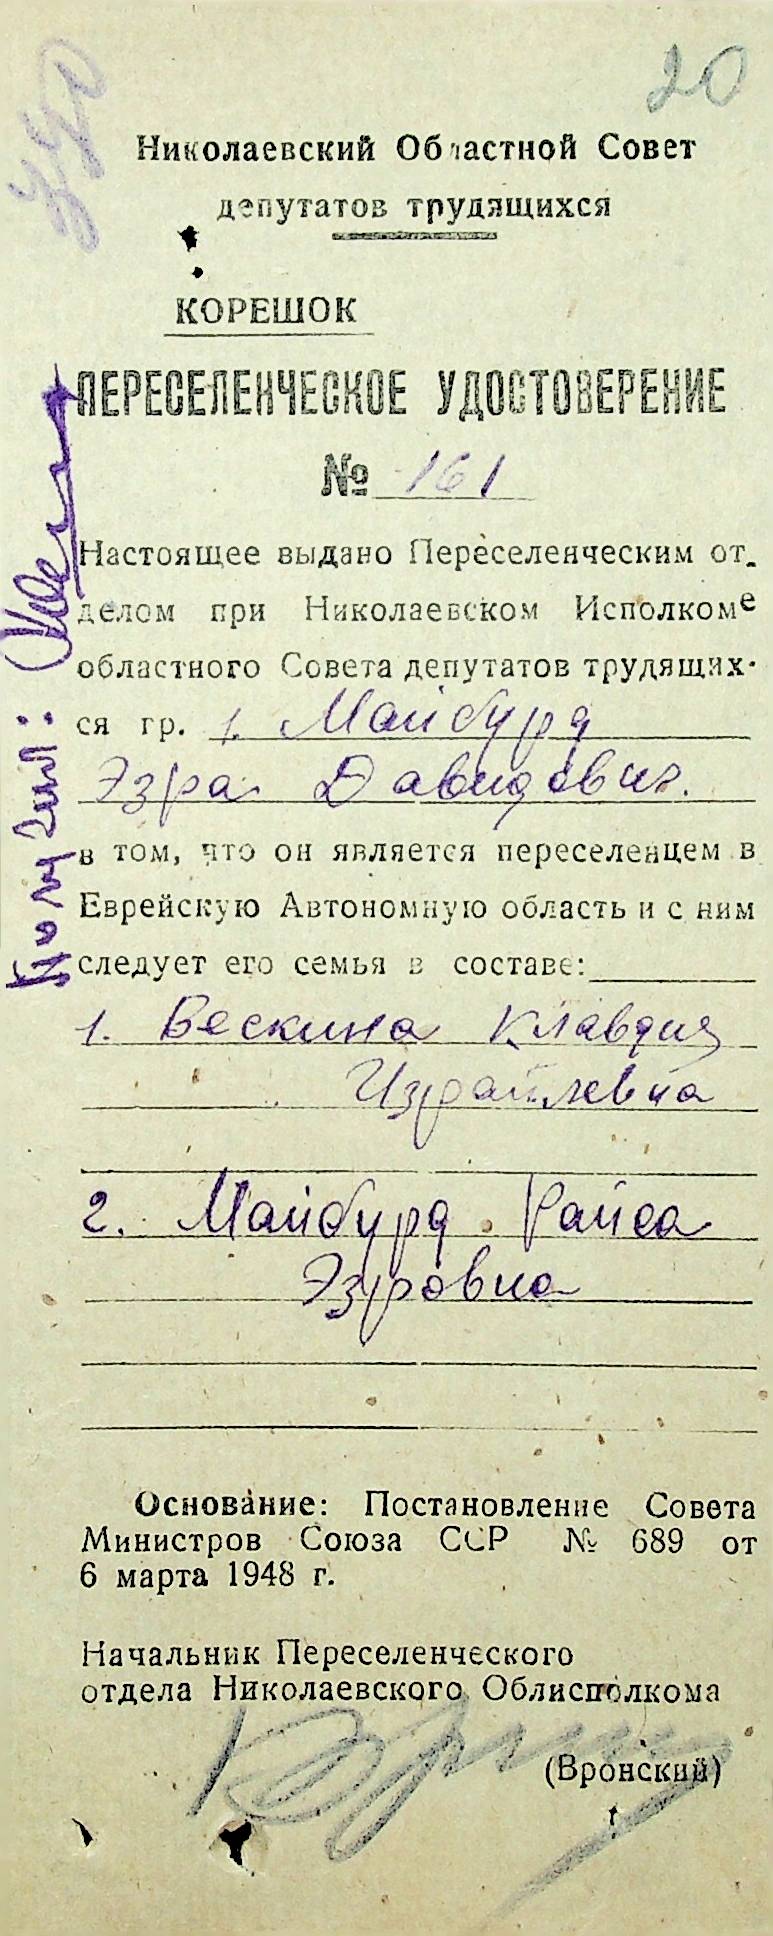 20
Николаевский Областной Совет
депутатов трудящихся
КОРЕШОК
ПЕРЕСЕЛЕНЧЕСКОЕ УДОСТОВЕРЕНИЕ
№ 161
Настоящее выдано Переселенческим от-
делом при Николаевском Исполкоме
областного Совета депутатов трудящих-
ся гр. 1. Майбурд
Эзра Давидович.
в том, что он является переселенцем в
Еврейскую Автономную область и с ним
следует его семья в составе:
1. Вескина Клавдия
Израйлевна
2. Майбурд Раиса
Эзровна
Основание: Постановление Совета
Министров Союза ССР № 689 от
6 марта 1948 г.
Начальник Переселенческого
отдела Николаевского Облисполкома
(Вронский)
Получил: